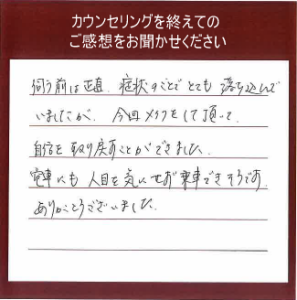 カウンセリングを終えての
ご感想をお聞かせください
伺う前は正直、症状のことでとても落ち込んで
いましたが、今回メイクをして頂いて、
自信を取り戻すことができました。
電車にも人目を気にせず乗車できそうです。
ありがとうございました。